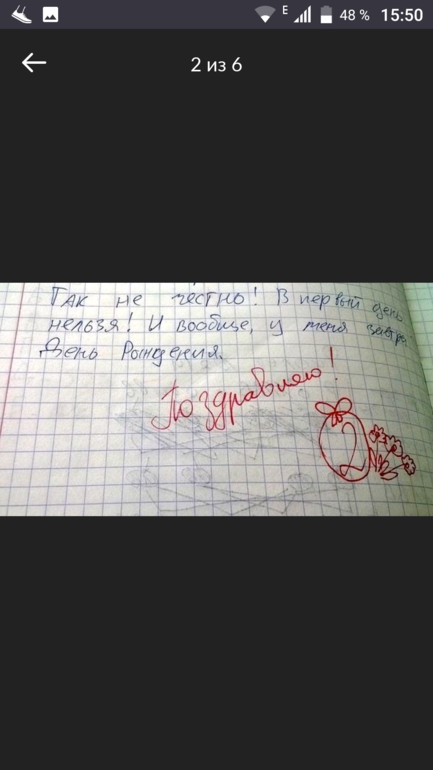 E 48 % 15:50
2 из 6
Так не честно! В первый день
нельзя! И вообще, у меня завтра
День Рождения.
Поздравляю!
2